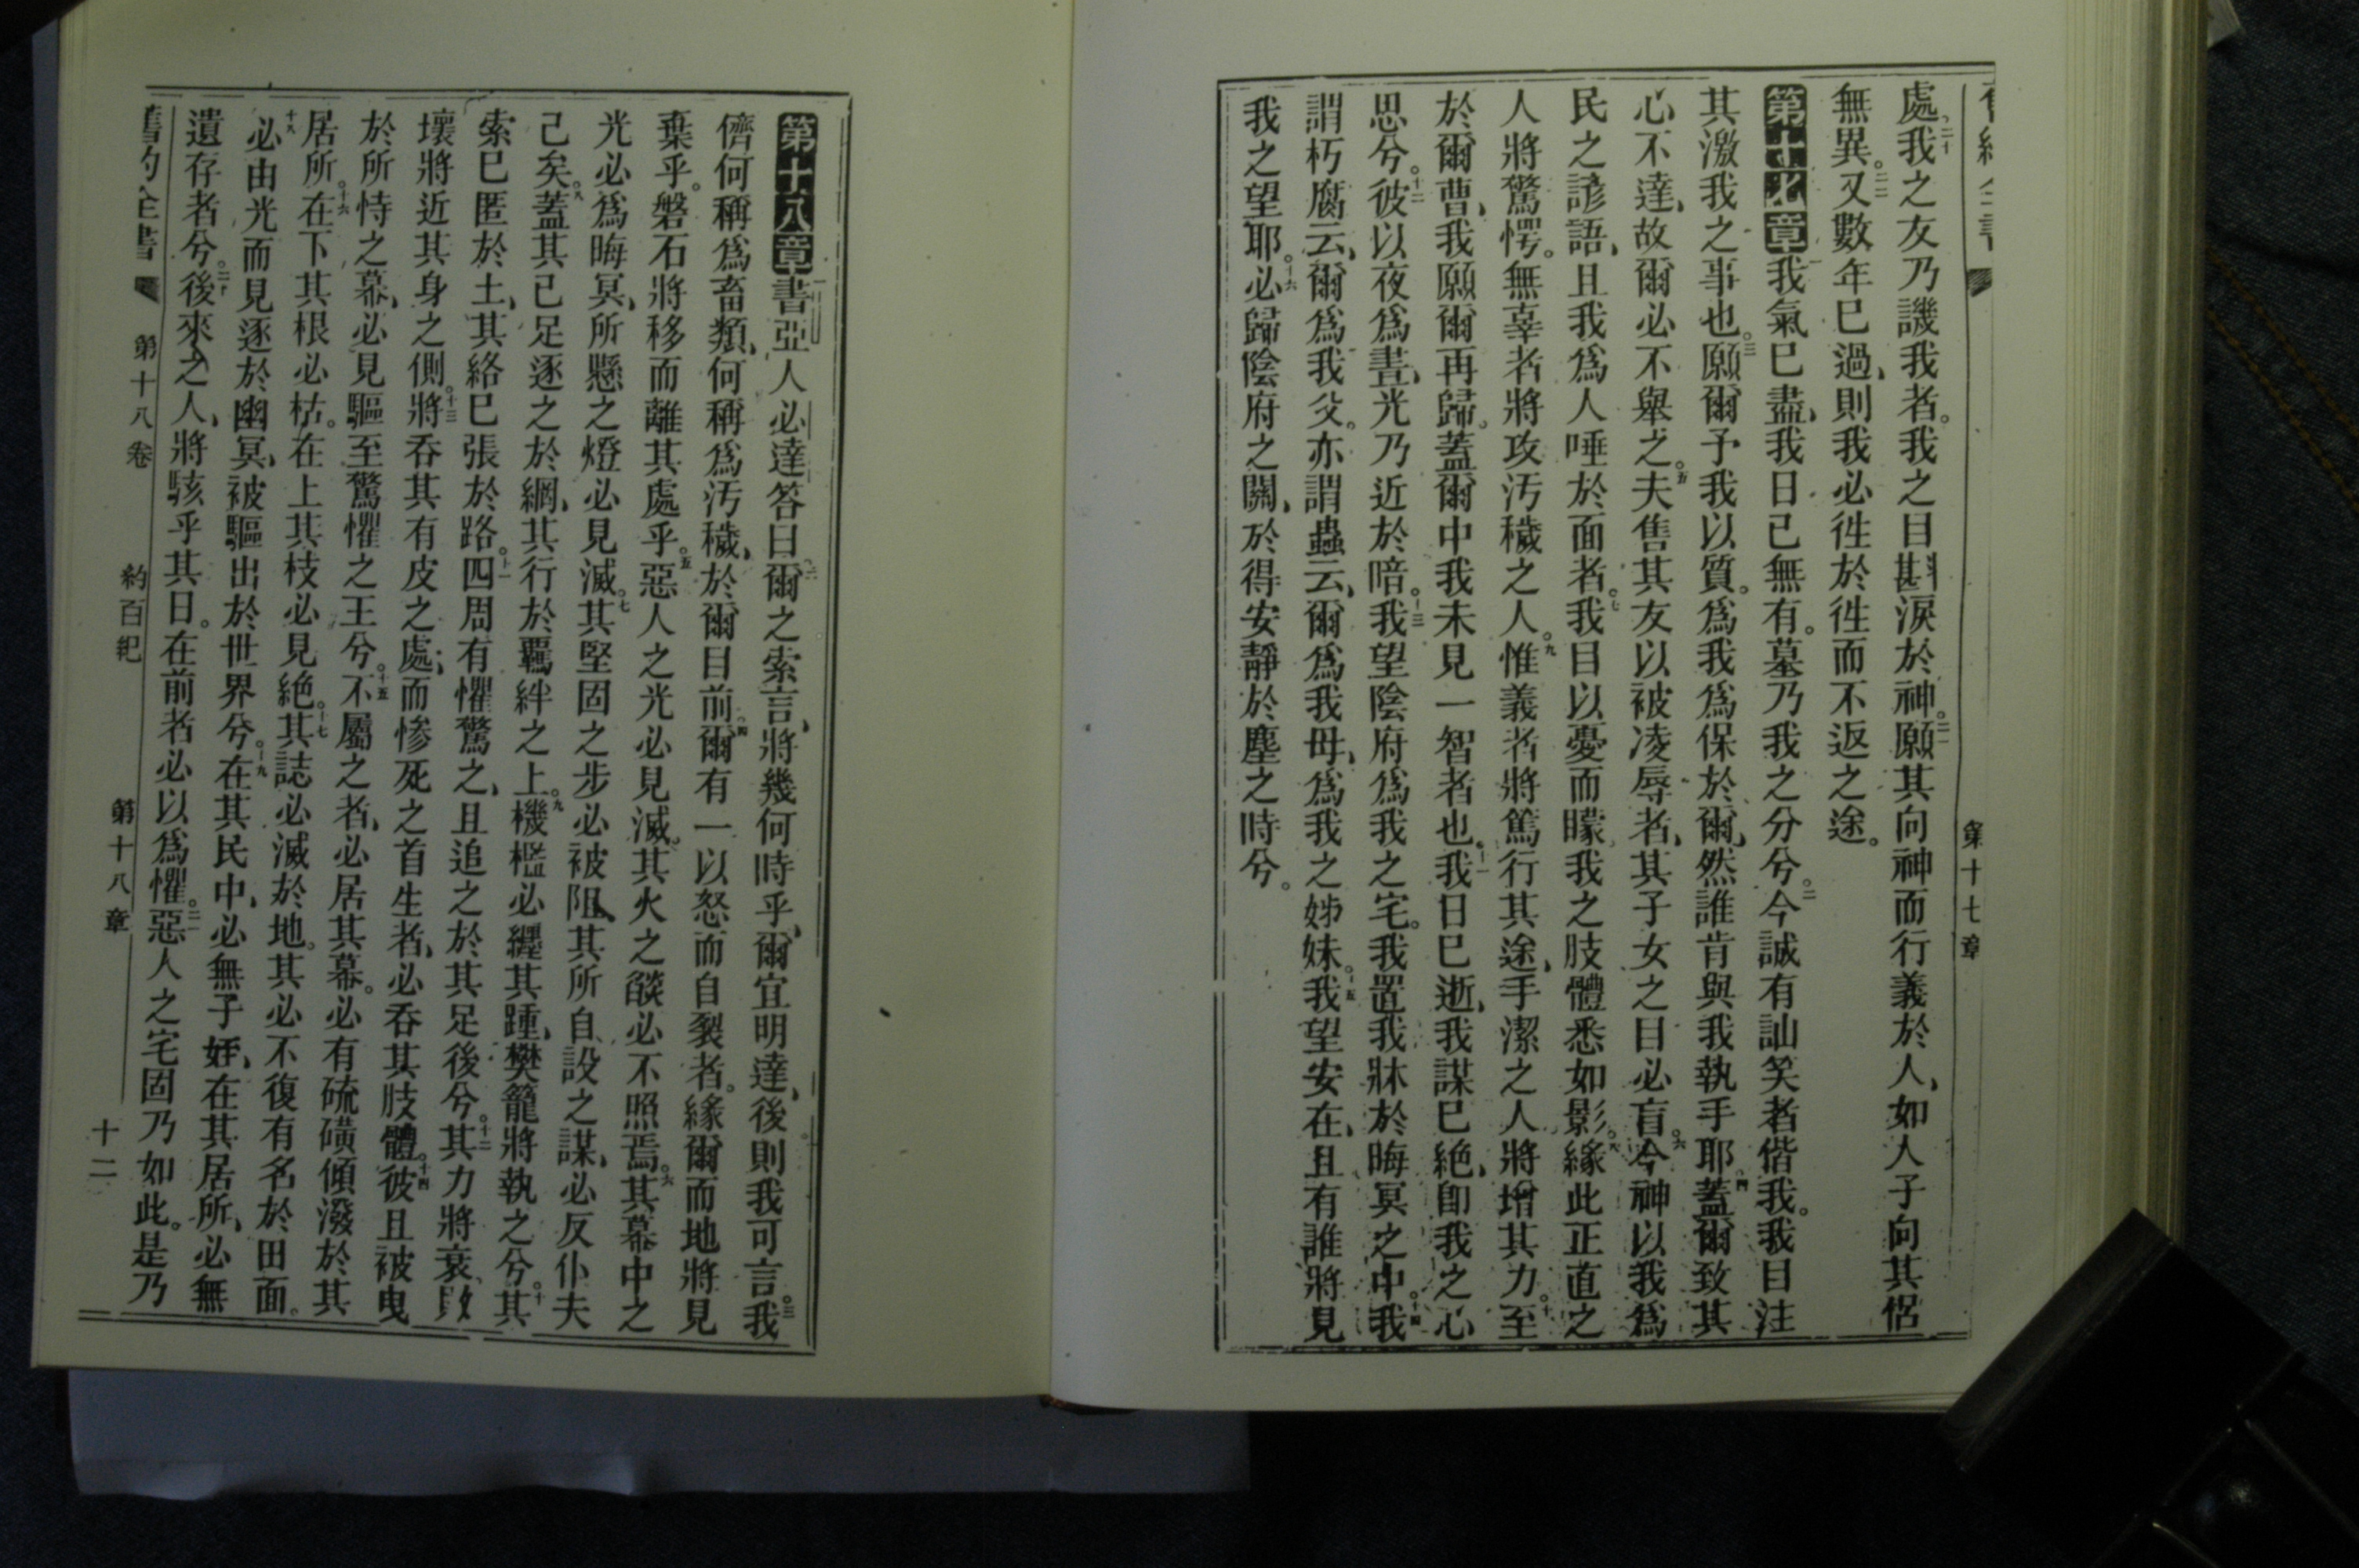 第十七章
處我之友乃譏我者。我之目斟淚於神。願其向神而行義於人、如人子向其侶
無異。又數年已過、則我必徃於徃而不返之途。
第十七章我氣已盡、我日已無有。墓乃我之分兮。今誠有訕笑者偕我。我目注
其激我之事也。願爾予我以質。爲我爲保於爾、然誰肯與我執手耶。蓋爾致其
心不達、故爾必不舉之。夫售其友以被凌辱者、其子女之目必盲。今神以我爲
民之諺語、且我爲人唾於面者。我目以憂而矇、我之肢體悉如影。緣此正直之
人將驚愕。無辜者將攻汚穢之人。惟義者將篤行其途、手潔之人將增其力。至
於爾曹、我願爾再歸。蓋爾中我未見一智者也。我日已逝、我謀已絕、卽我之心
思兮。彼以夜爲晝、光乃近於暗。我望陰府爲我之宅。我置我牀於晦冥之中。我
謂朽腐云、爾爲我父。亦謂蟲云、爾爲我母、爲我之姊妹。我望安在、且有誰將見
我之望耶。必歸陰府之關、於得安靜於塵之時兮。
第十八章書亞人必達答曰爾之索言、將幾何時乎、爾宜明達、後則我可言。我
儕何稱爲畜類、何稱爲汚穢、於爾目前爾有一以怒而自裂者。緣爾而地將見
棄乎。磐石將移而離其處乎。惡人之光必見滅。其火之燄必不照焉。其幕中之
光必爲晦冥、所懸之燈必見滅。其堅固之步必被阻、其所自設之謀、必反仆夫
己矣。蓋其已足逐之於網、其行於羈絆之上。機檻必纒其踵、樊籠將執之兮。其
索已匿於土、其絡已張於路。四周有懼驚之、且追之於其足後兮。其力將衰、敗
壞將近其身之側。將吞其有皮之處、而慘死之首生者、必吞其肢體。彼且被曳
於所恃之幕、必見驅至驚懼之王兮。不屬之者、必居其幕。必有硫磺傾潑於其
居所。在下其根必枯。在上其枝必見絕。其誌必滅於地。其必不復有名於田面。
必由光而見逐於幽冥、被驅出於世界兮。在其民中、必無子姪、在其居所、必無
遺存者兮。後來之人、將駭乎其日。在前者必以爲懼。惡人之宅固乃如此。是乃
舊約全書 第十八卷 約百紀 第十八章 十二